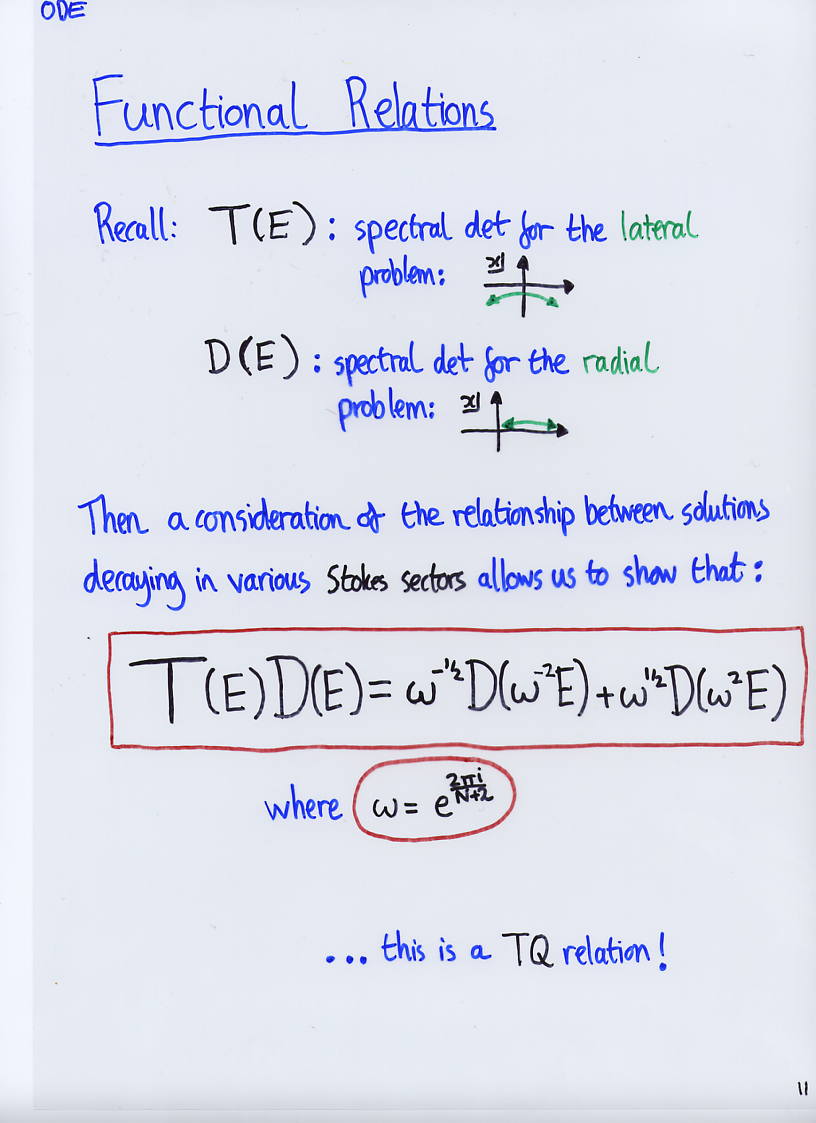 ODE
Functional Relations
Recall: T(E) : spectral det for the lateral
problem: x
D(E) : spectral det for the radial
problem: x
Then a consideration of the relationship between solutions
decaying in various Stokes sectors allows us to show that:
T(E)D(E) = ω^{-1/2}D(ω^{-2}E) + ω^{1/2}D(ω^{2}E)
where ω = e^{\frac{2πi}{N+2}}
... this is a TQ relation!
11